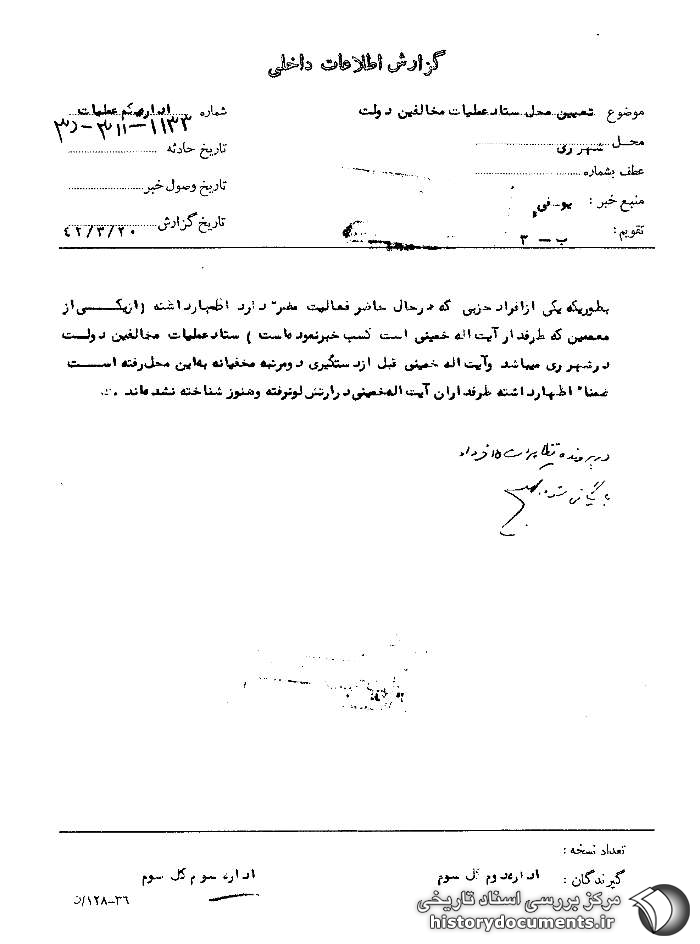 گزارش اطلاعات داخلی
موضوع تعیین محل ستاد عملیات مخالفین دولت
شماره اداره یکم عملیات
۱۱۳۳-۳۱۱-
محل شهر ری
تاریخ حادثه
عطف بشماره
تاریخ وصول خبر
منبع خبر :
تاریخ گزارش ۴۲/۳/۲۰
تقویم : ب - ۳
بطوریکه یکی از افراد حزبی که در حال حاضر فعالیت مضره دارد اظهار داشته ( از یکسی از
معممین که طرفدار آیت اله خمینی است کسب خبر نموده است ) ستاد عملیات مخالفین دولت
در شهر ری میباشد وآیت اله خمینی قبل از دستگیری دو مرتبه مخفیانه به این محل رفته است
ضمنا" اظهار داشته طرفداران آیت اله خمینی در ارتش لو نرفته وهنوز شناخته نشده اند .
در پرونده تظاهرات ۱۵ خرداد
بایگانی شود
تعداد نسخه :
گیرندگان : اداره دوم کل سوم
اداره سوم کل سوم
۱۲۸-۳۶/د
مرکز بررسی اسناد تاریخی
historydocuments.ir